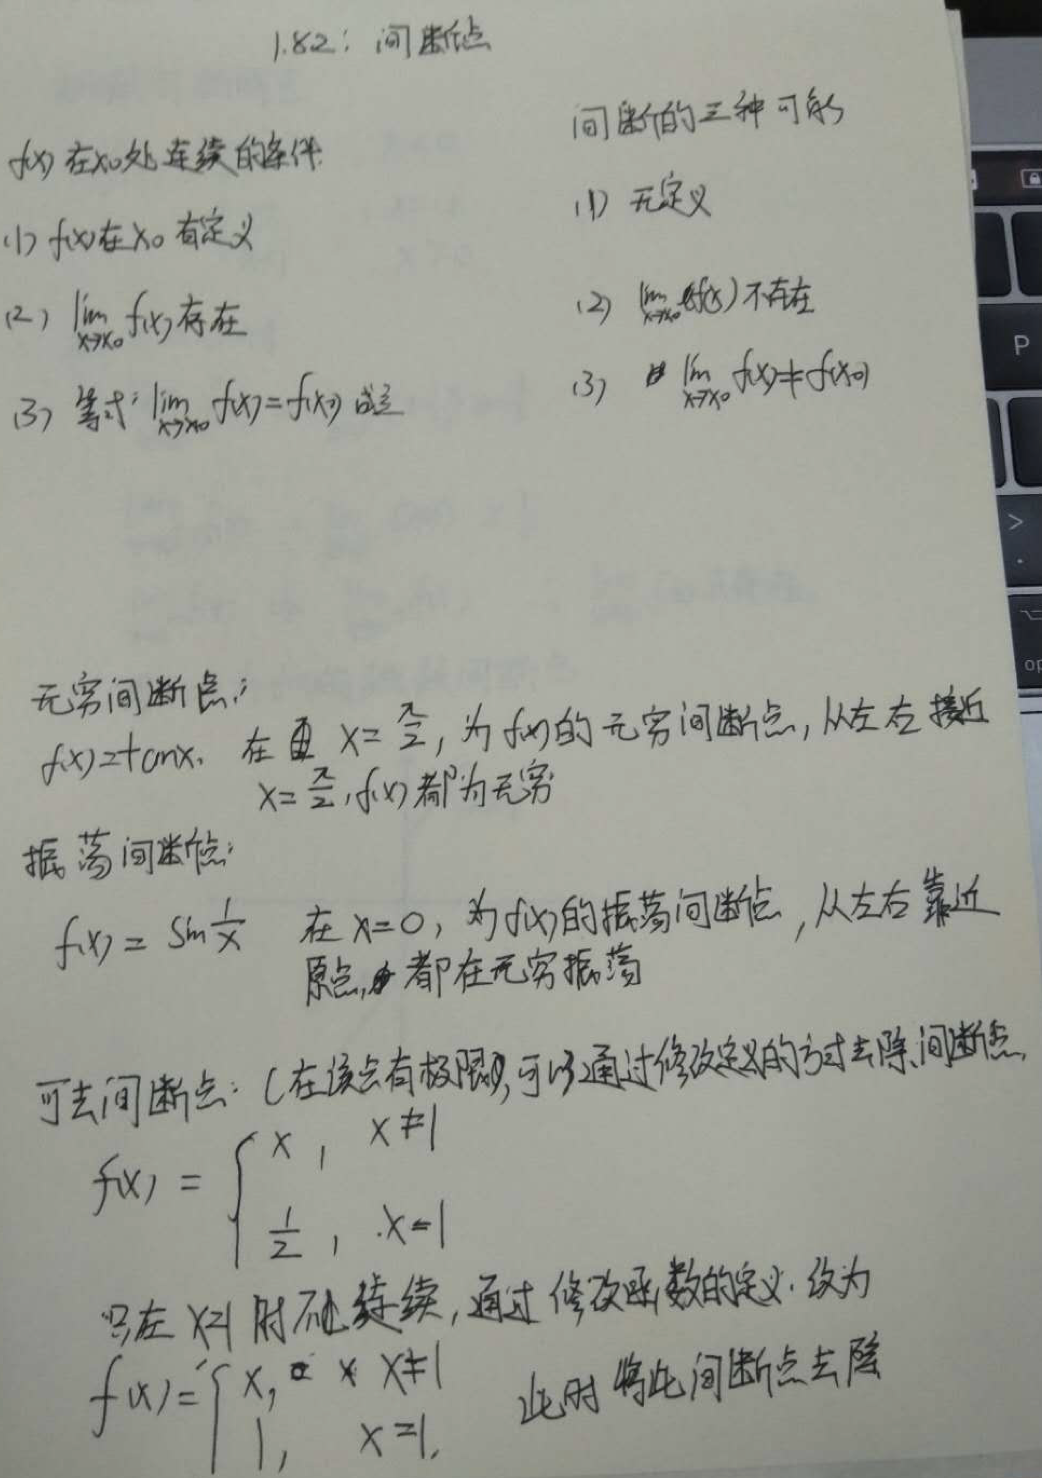 1.82: 间断点
f(x)在x₀处连续的条件
(1) f(x)在x₀有定义
(2) lim x→x₀ f(x)存在
(3) 等式: lim x→x₀ f(x)=f(x₀)成立
间断的三种可能
(1) 无定义
(2) lim x→x₀ f(x)不存在
(3) lim x→x₀ f(x)≠f(x₀)
无穷间断点:
f(x)=tanx. 在 x=π/2, 为f(x)的无穷间断点, 从左右接近
x=π/2, f(x)都为无穷
振荡间断点:
f(x)=sin 1/x 在x=0, 为f(x)的振荡间断点, 从左右靠近
原点, 都在无穷振荡
可去间断点: (在该点有极限), 可以通过修改定义的方式去除间断点.
f(x) = { x, x≠1
1/2, x=1
只在x=1时不连续, 通过修改函数的定义. 改为
f(x)= { x, x≠1
1, x=1.
此时将此间断点去除
P
>
.
op